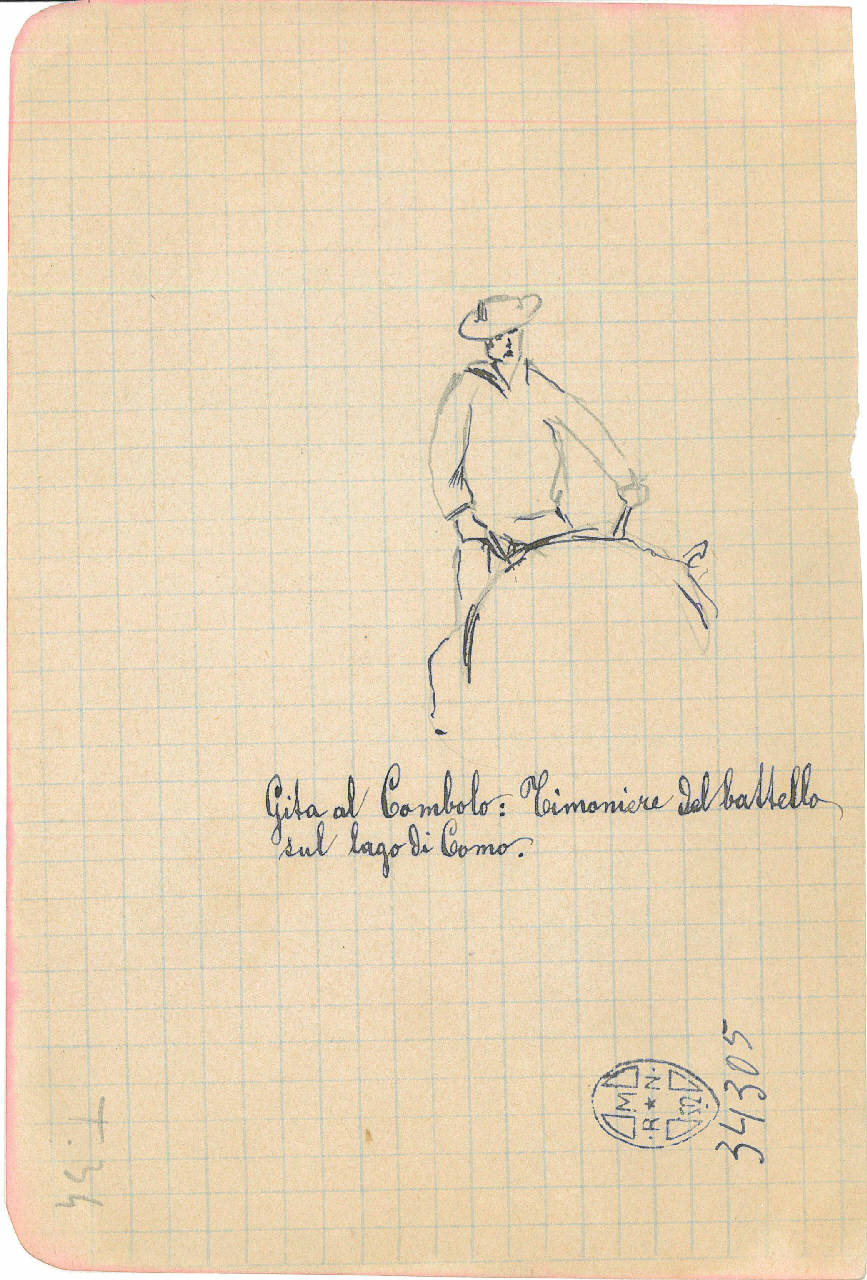 Gita al Combolo: Timoniere del battello
sul lago di Como.
M
·R★N·
M
34305